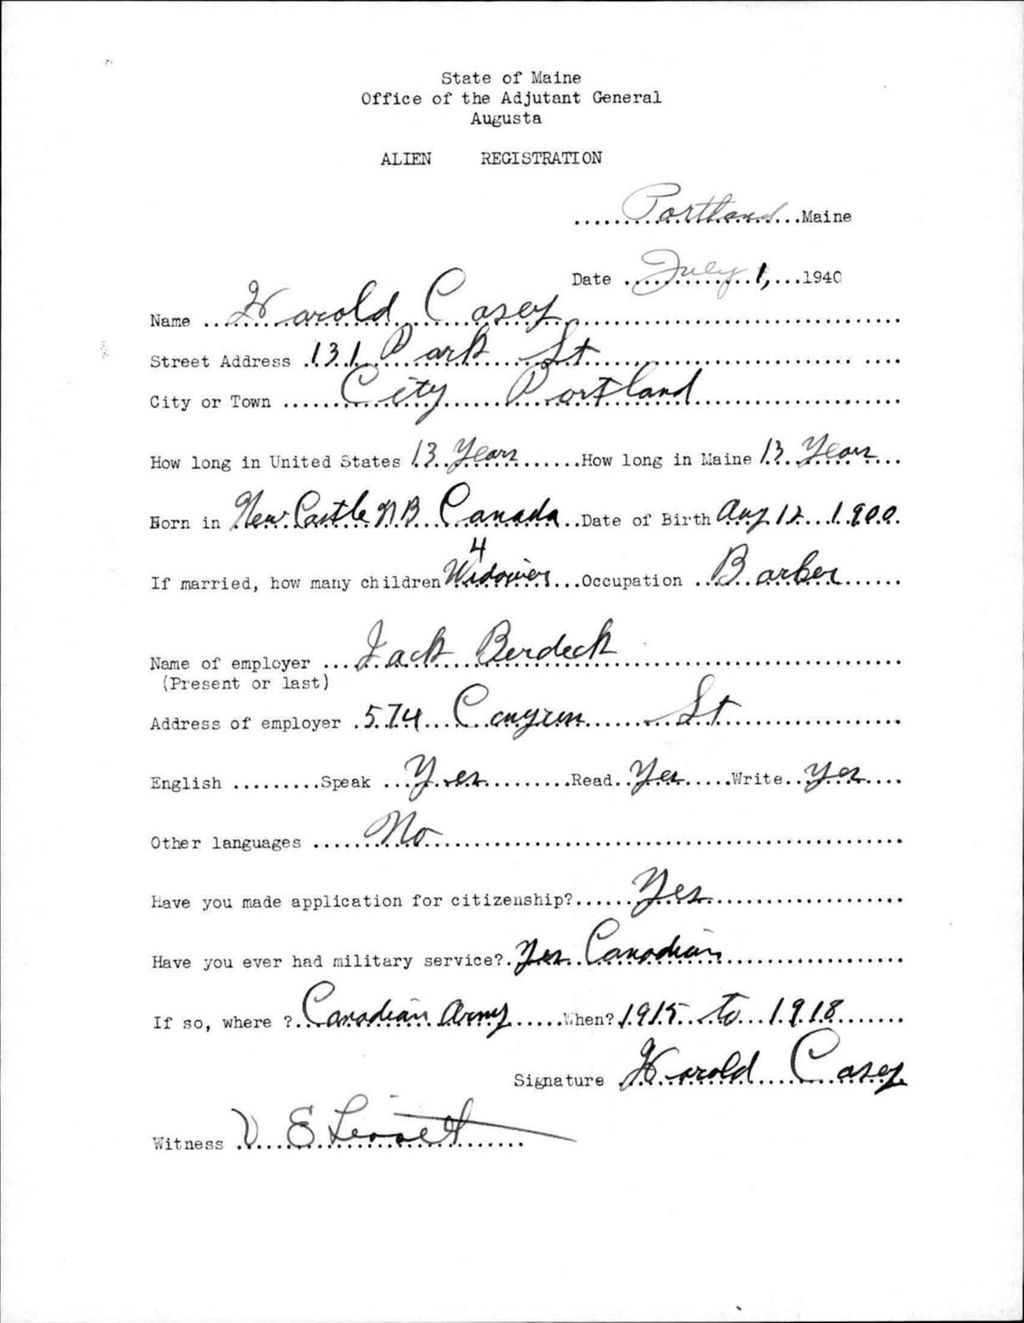 State of Maine
Office of the Adjutant General
Augusta
ALIEN REGISTRATION
Portland Maine
Date July 1, 1940
Name Harold Casey
Street Address 131 Park St
City or Town City Portland
How long in United States 13 Years How long in Maine 13 Years
Born in New Castle NB Canada Date of Birth Aug 12 1900
4
If married, how many children Widower Occupation Barber
Name of employer Jack Berdeck
(Present or last)
Address of employer 574 Congress St
English Speak Yes Read Yes Write Yes
Other languages No
Have you made application for citizenship? Yes
Have you ever had military service? Yes Canadian
If so, where ? Canadian Army When? 1915 to 1918
Signature Harold Casey
Witness V E